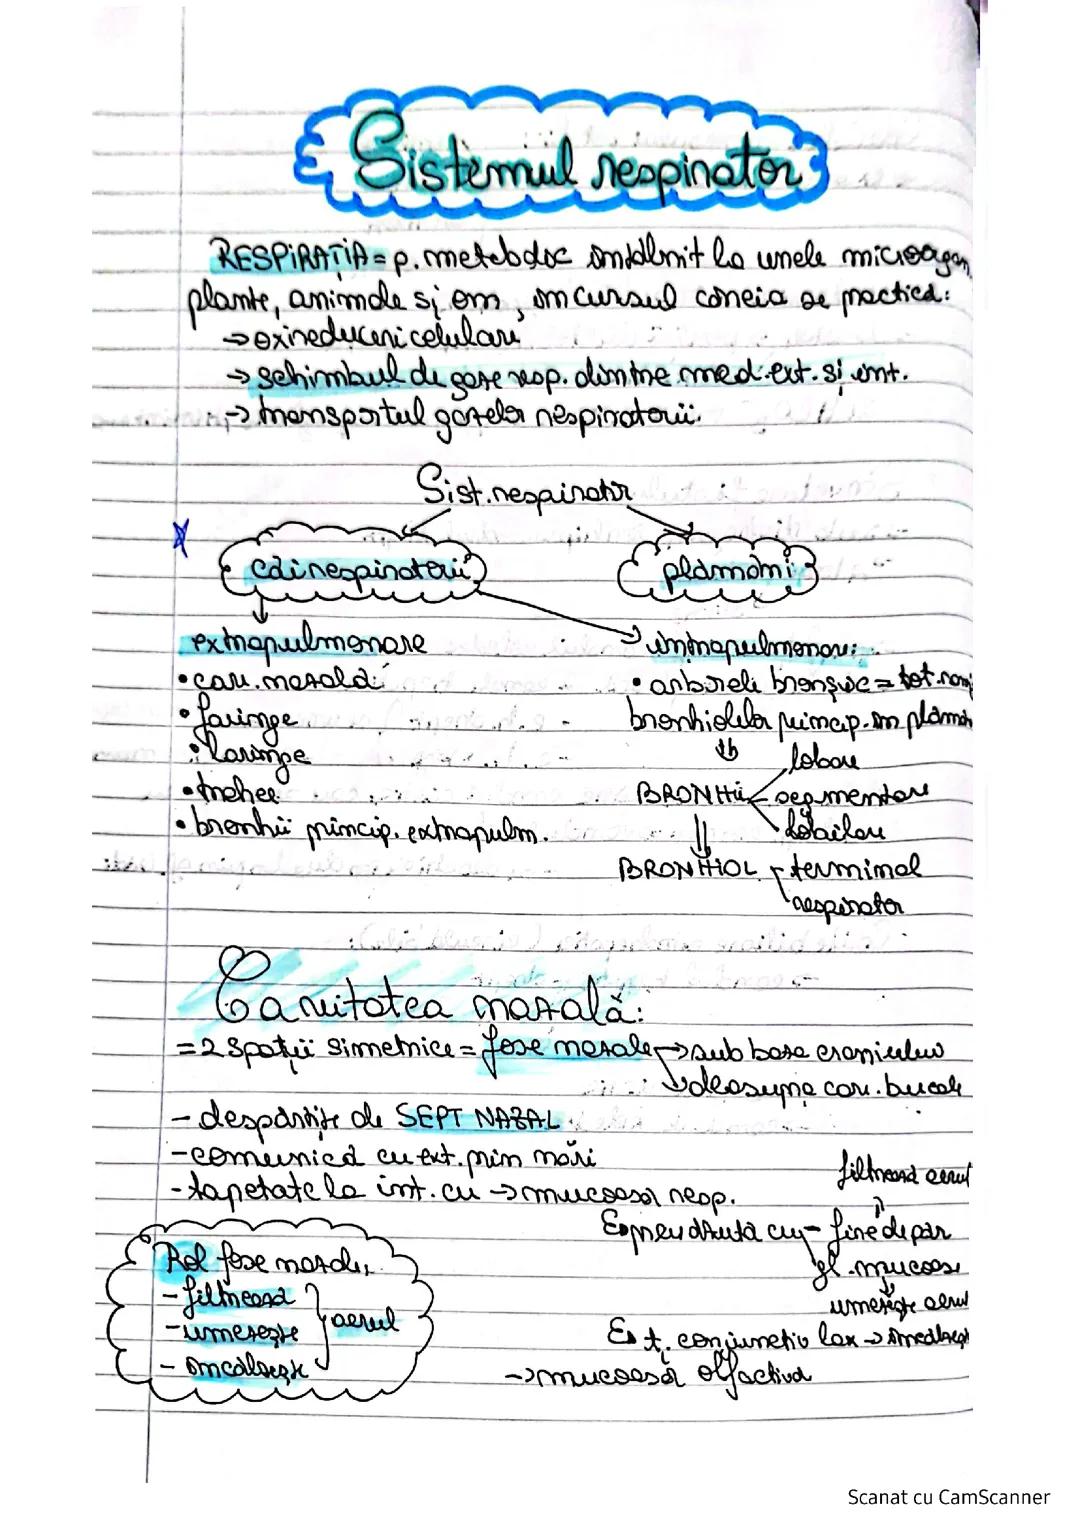 Sistemul respirator
RESPIRAȚIA = p. metabolic întâlnit la unele microorgan
plante, animale și om, în cursul căreia se practică:
→ oxireduceri celulare
→ schimbul de gaze resp. dintre med. ext. și int.
→ transportul gazelor respiratorii.
Sist. respirator
căi respiratorii plămâni
extrapulmonare → intrapulmonare:
• cav. nazală • arborele bronșic = tot. ram
• faringe bronhiolelor princip. în plămân
• laringe lobare
• trahee BRONHII segmentare
• bronhii princip. extrapulm. lobulare
BRONHIOL terminal
respirator
Cavitatea nazală:
= 2 spații simetrice = fose nazale → sub baza craniului
→ deasupra cav. bucale
- despărțite de SEPT NAZAL
- comunică cu ext. prin nări
- tapetate la int. cu → mucoasă resp.
filtrează aerul
E prevăzută cu - fire de păr
gl. mucoase
umezește aerul
Rol fose nazale:
- filtrează
- umezește aerul
- încălzește
E t. conjunctiv lax → încălzește
→ mucoasă olfactivă
Scanat cu CamScanner